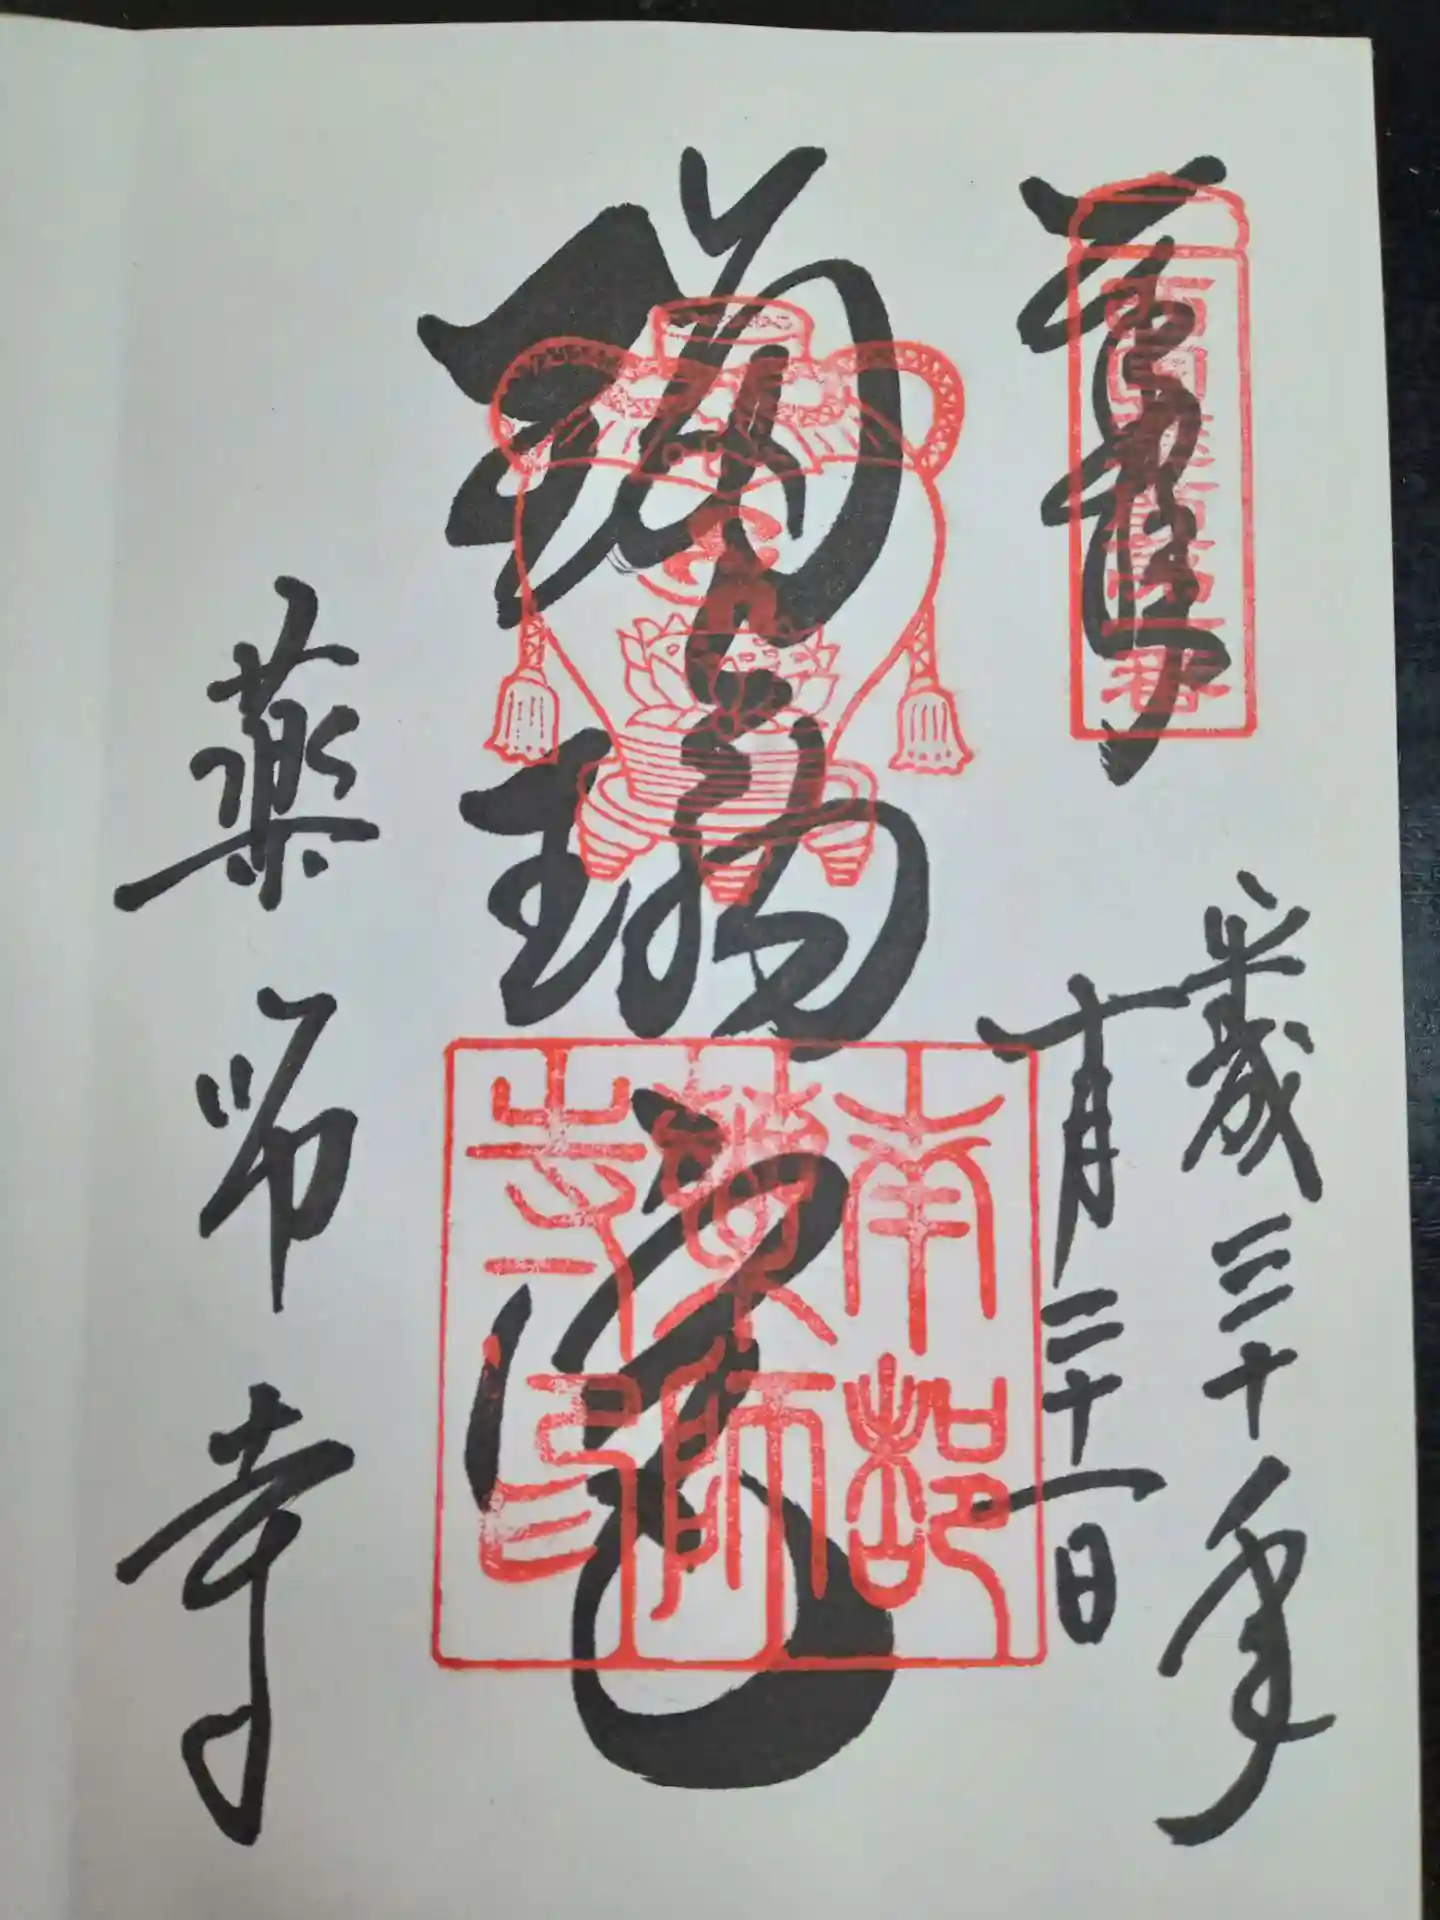 奉拝
西国薬師第一番
平成三十年
十月二十一日
瑠璃光
南都
薬師
寺印
薬師寺